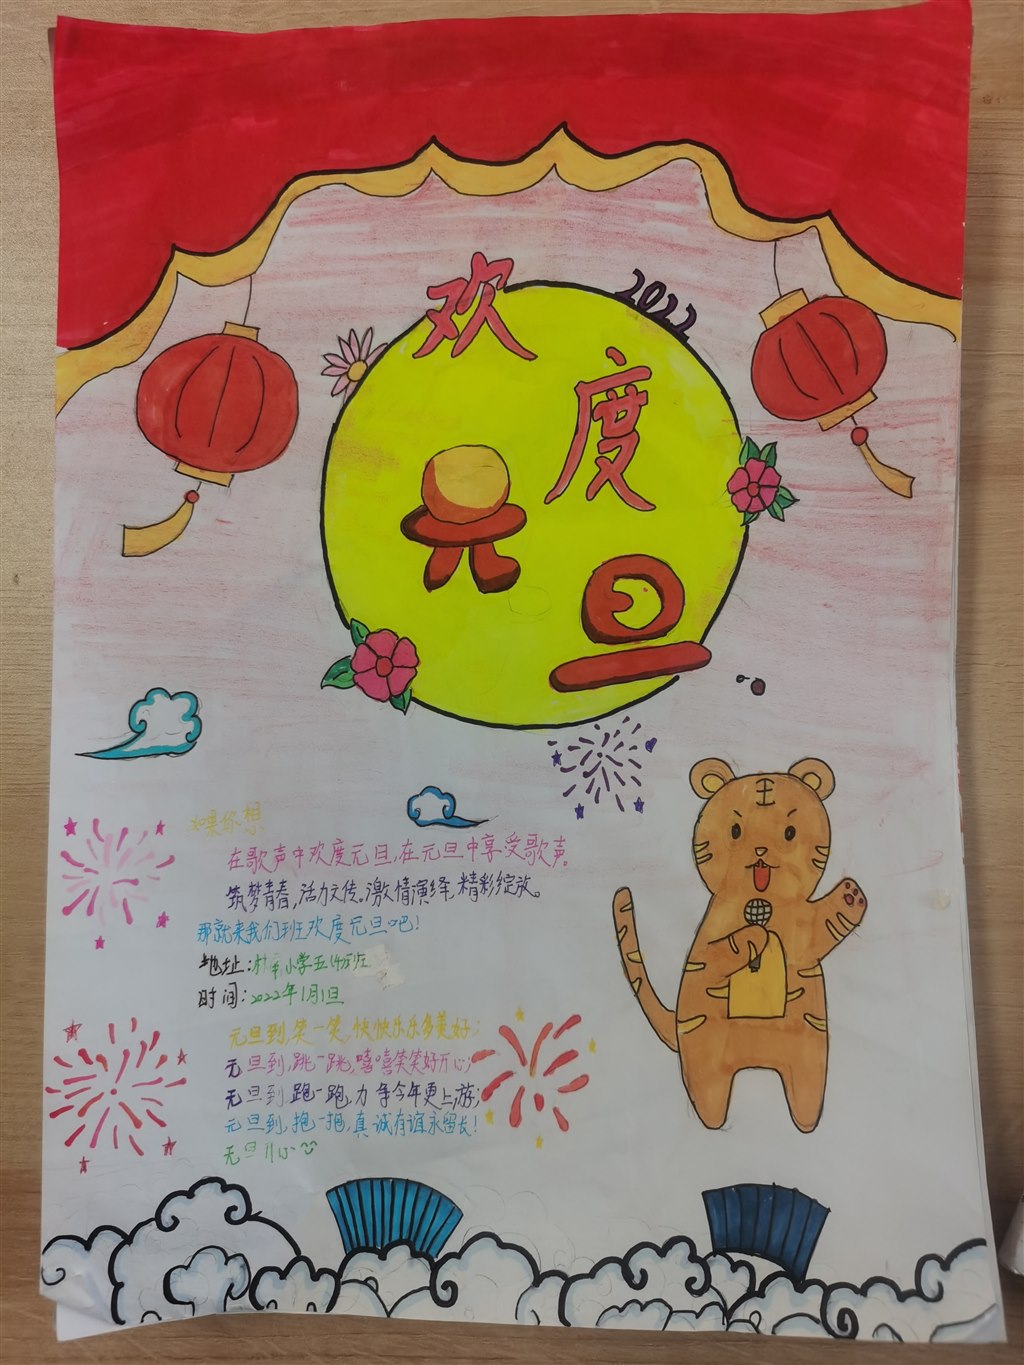 欢度
2022
元旦
如果你想
在歌声中欢度元旦,在元旦中享受歌声。
筑梦青春,活力文传。激情演绎,精彩绽放。
那就来我们班欢度元旦吧!
地址:小学五(4)班
时间:2022年1月1旦
元旦到,笑一笑,快快乐乐多美好;
元旦到,跳一跳,嘻嘻笑笑好开心;
元旦到,跑一跑,力争今年更上游;
元旦到,抱一抱,真诚有谊永留长!
元旦开心
王